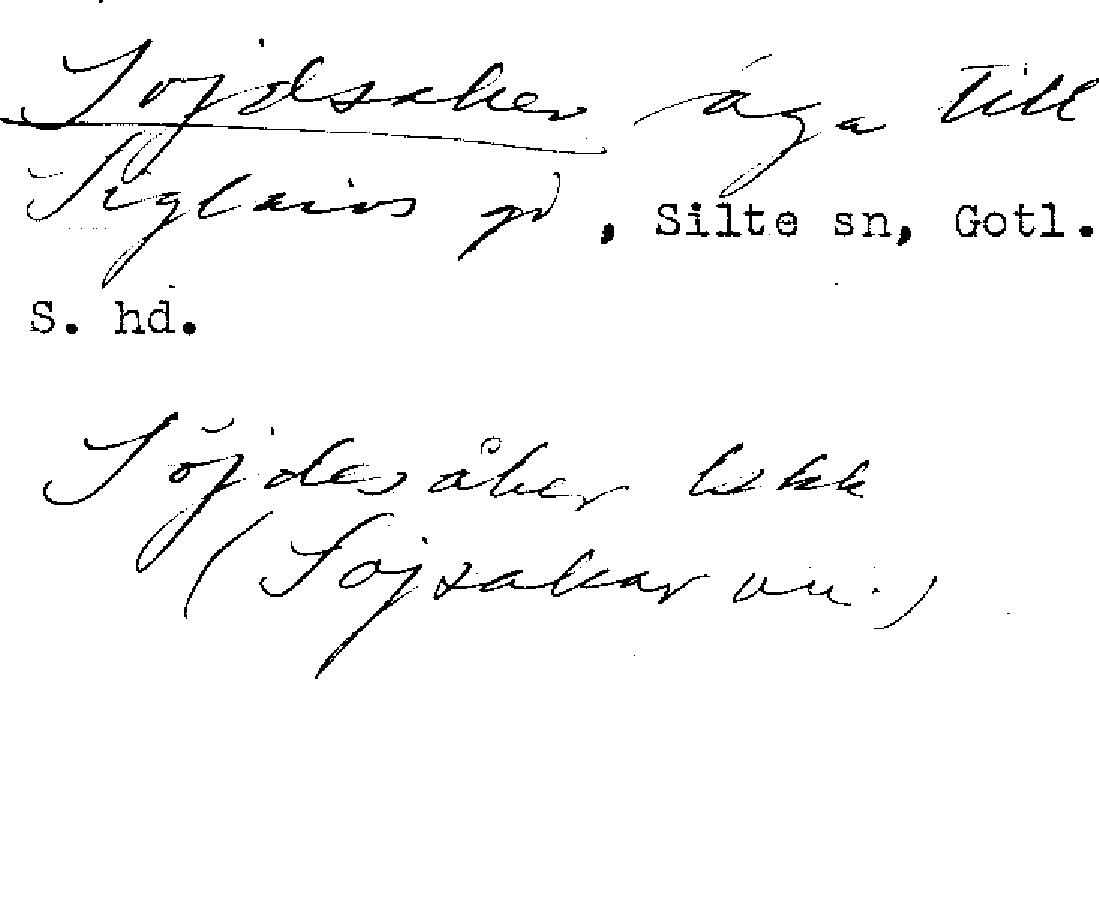 Sojdsaker äga till
Siglaivs gd, Silte sn, Gotl.
S. hd.
Söjdesåker
(Sojsakar